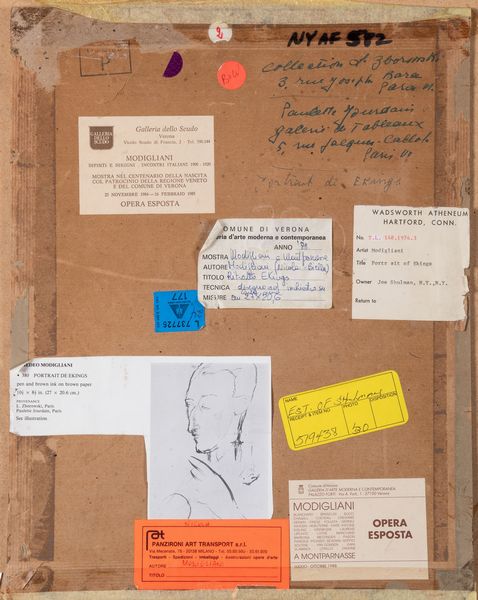 2
B&W
NYAF 582
Collection of Zborowski
3, rue Joseph Bara
Paris VI.
Paulette Jourdain
galerie de Tableaux
5, rue Jacques-Callot
Paris VI
Portrait di Ekings
GALLERIA
DELLO
SCUDO
Galleria dello Scudo
Verona
Vicolo Scudo di Francia, 2 - Tel. 590.144
MODIGLIANI
DIPINTI E DISEGNI - INCONTRI ITALIANI 1900 - 1920
MOSTRA NEL CENTENARIO DELLA NASCITA
COL PATROCINIO DELLA REGIONE VENETO
E DEL COMUNE DI VERONA
25 NOVEMBRE 1984 - 16 FEBBRAIO 1985
OPERA ESPOSTA
COMUNE DI VERONA
Galleria d'arte moderna e contemporanea
ANNO '88
MOSTRA Modigliani a Montparnasse
AUTORE Modigliani
TITOLO Ritratto Ekings
TECNICA
MISURE cm 27x20,6
WADSWORTH ATHENEUM
HARTFORD, CONN.
No. T.L. 140.1974.3
Artist Modigliani
Title Portrait of Ekings
Owner Joe Shulman, N.Y., N.Y.
Return to
L 737725
177
AMEDEO MODIGLIANI
• 380 PORTRAIT DE EKINGS
pen and brown ink on brown paper
10⅝ × 8⅛ in. (27 × 20.6 cm.)
PROVENANCE
L. Zborowski, Paris
Paulette Jourdain, Paris
See illustration
NAME
EST. OF Shulman
RECEIPT & ITEM NO. PHOTO DISPOSITION
579438 380
at
PANZIRONI ART TRANSPORT s.r.l.
Trasporti - Spedizioni - Imballaggi - Assicurazioni opere d'arte
AUTORE MODIGLIANI
TITOLO
Comune di Verona
GALLERIA D'ARTE MODERNA E CONTEMPORANEA
PALAZZO FORTI
MODIGLIANI
OPERA
ESPOSTA
A MONTPARNASSE